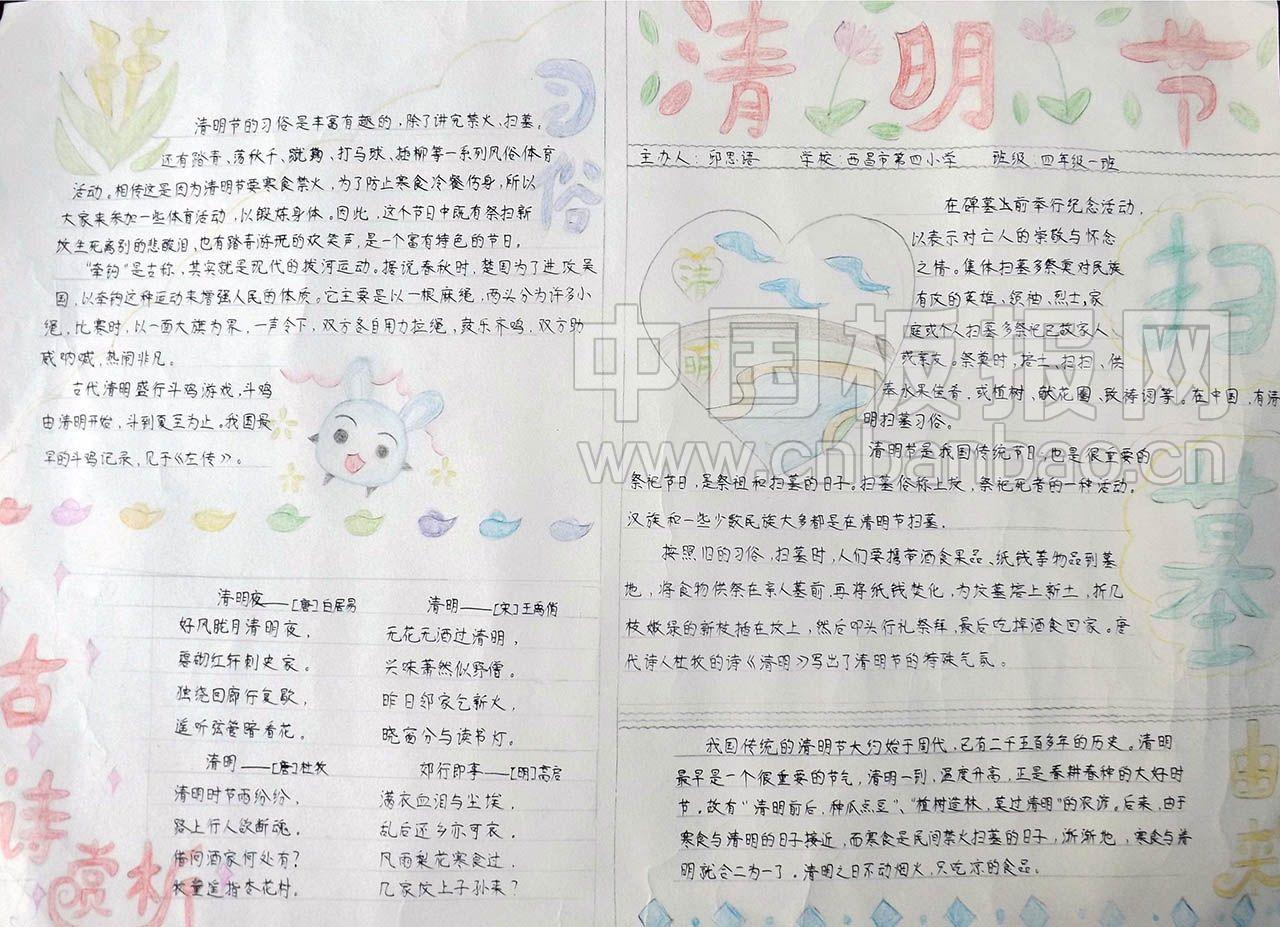 清明节
主办人：邱思语 学校：西昌市第四小学 班级：四年级一班
习俗
清明节的习俗是丰富有趣的，除了讲究禁火、扫墓。
还有踏青、荡秋千、蹴鞠、打马球、插柳等一系列风俗体育
活动。相传这是因为清明节要寒食禁火，为了防止寒食冷餐伤身，所以
大家来参加一些体育活动，以锻炼身体。因此，这个节日中既有祭扫新
坟生死离别的悲酸泪，也有踏青游玩的欢笑声，是一个富有特色的节日。
“牵钩”是古称，其实就是现代的拔河运动。据说春秋时，楚国为了进攻吴
国，以牵钩这种运动来增强人民的体质。它主要是以一根麻绳，两头分为许多小
绳，比赛时，以一面大旗为界，一声令下，双方各自用力拉绳，鼓乐齐鸣，双方助
威呐喊，热闹非凡。
古代清明盛行斗鸡游戏，斗鸡
由清明开始，斗到夏至为止。我国最
早的斗鸡记录，见于《左传》。
古诗
赏析
清明夜——[唐]白居易
好风胧月清明夜，
碧砌红轩刺史家。
独绕回廊行复歇，
遥听弦管暗看花。
清明——[宋]王禹偁
无花无酒过清明，
兴味萧然似野僧。
昨日邻家乞新火，
晓窗分与读书灯。
清明——[唐]杜牧
清明时节雨纷纷，
路上行人欲断魂。
借问酒家何处有？
牧童遥指杏花村。
郊行即事——[明]高启
满衣血泪与尘埃，
乱后还乡亦可哀。
风雨梨花寒食过，
几家坟上子孙来？
清
明
扫墓
在碑墓上前举行纪念活动，
以表示对亡人的崇敬与怀念
之情。集体扫墓多祭奠对民族
有攻的英雄、领袖、烈士，家
庭或个人扫墓多祭祀已故家人、
或亲友。祭奠时，培土、扫扫、供
奉水果佳肴，或植树、献花圈、致悼词等。在中国，有清
明扫墓习俗。
清明节是我国传统节日，也是很重要的
祭祀节日，是祭祖和扫墓的日子。扫墓俗称上坟，祭祀死者的一种活动。
汉族和一些少数民族大多都是在清明节扫墓。
按照旧的习俗，扫墓时，人们要携带酒食果品、纸钱等物品到墓
地，将食物供祭在亲人墓前，再将纸钱焚化，为坟墓培上新土，折几
枝嫩绿的新枝插在坟上，然后叩头行礼祭拜，最后吃掉酒食回家。唐
代诗人杜牧的诗《清明》写出了清明节的特殊气氛。
由来
我国传统的清明节大约始于周代，已有二千五百多年的历史。清明
最早是一个很重要的节气，清明一到，温度升高，正是春耕春种的大好时
节。故有“清明前后，种瓜点豆”、“植树造林，莫过清明”的农谚。后来，由于
寒食与清明的日子接近，而寒食是民间禁火扫墓的日子，渐渐地，寒食与清
明就合二为一了。清明之日不动烟火，只吃凉的食品。
中国板报网
www.cnbanbao.cn